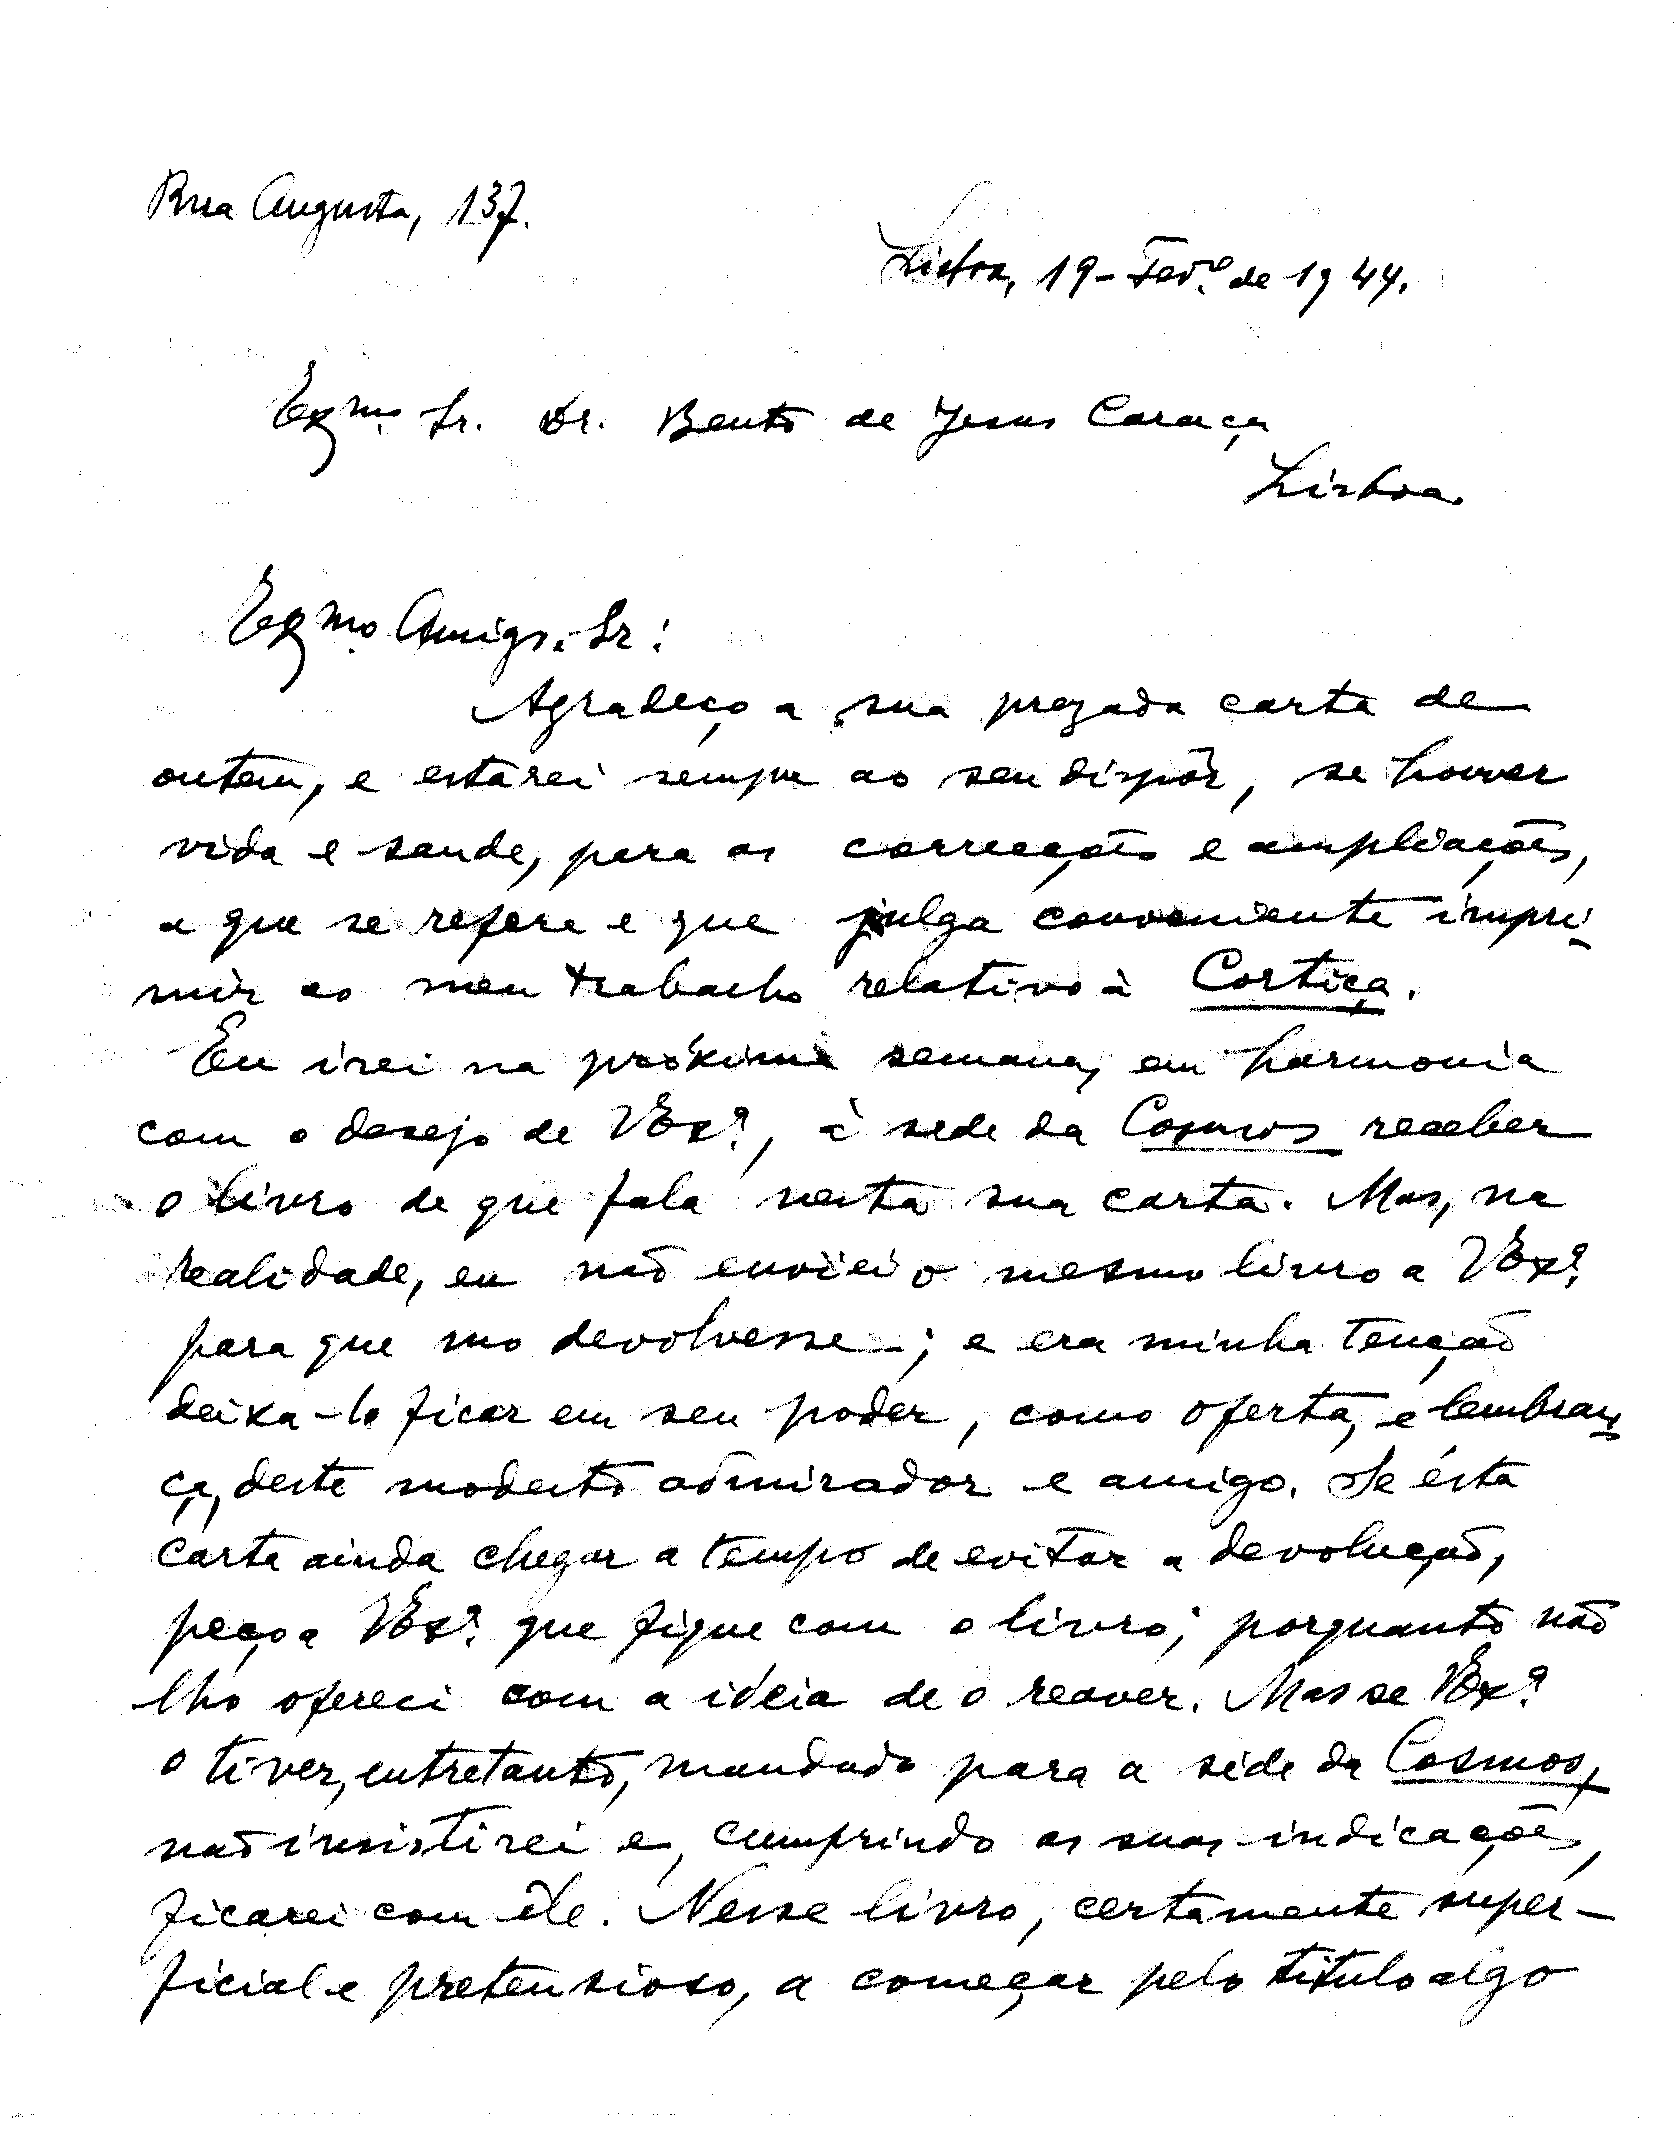 Rua Augusta, 137.
Lisboa, 19-Fev.º de 1944.
Exmo. Sr. Dr. Bento de Jesus Caraça
Lisboa.
Exmo. Amigo. Sr:
Agradeço a sua prezada carta de
ontem, e estarei sempre ao seu dispôr, se houver
vida e saude, para as correcções e ampliações,
a que se refere e que julga conveniente impri-
mir ao meu trabalho relativo à Cortiça.
Eu irei na próxima semana, em harmonia
com o desejo de VExª, à sede da Cosmos receber
o livro de que fala nesta sua carta. Mas, na
realidade, eu não enviei o mesmo livro a VExª
para que mo devolvesse-; e era minha tenção
deixa-lo ficar em seu poder, como oferta, e lembran-
ça, deste modesto admirador e amigo. Se ésta
carta ainda chegar a tempo de evitar a devolução,
peço a VExª que fique com o livro; porquanto não
lho ofereci com a idéia de o reaver. Mas se VExª
o tiver, entretanto, mandado para a séde da Cosmos,
não insistirei e, cumprindo as suas indicações,
ficarei com êle. Nesse livro, certamente super-
ficial e pretensioso, a começar pelo titulo algo